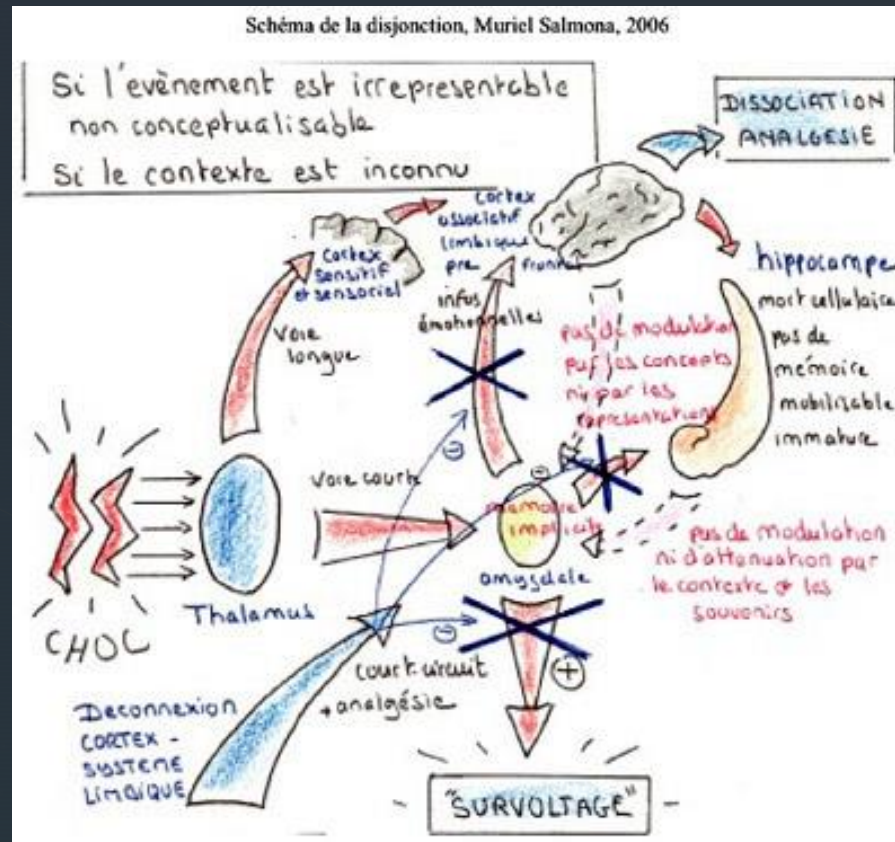 Schéma de la disjonction, Muriel Salmona, 2006
Si l'evènement est irrepresentable
non conceptualisable
Si le contexte est inconnu
DISSOCIATION
ANALGESIE
cortex
associatif
limbique
pre frontal
Cortex
sensitif
et sensoriel
hippocampe
mort cellulaire
pas de
mémoire
mobilisable
immature
infos
émotionnelles
Voie
longue
pas de modulation
par les concepts
ni par les
représentations
CHOC
Thalamus
Voie courte
mémoire
implicite
amygdale
pas de modulation
ni d'attenuation par
le contexte & les
souvenirs
court-circuit
+ analgésie
Deconnexion
CORTEX -
SYSTEME
LIMBIQUE
"SURVOLTAGE"